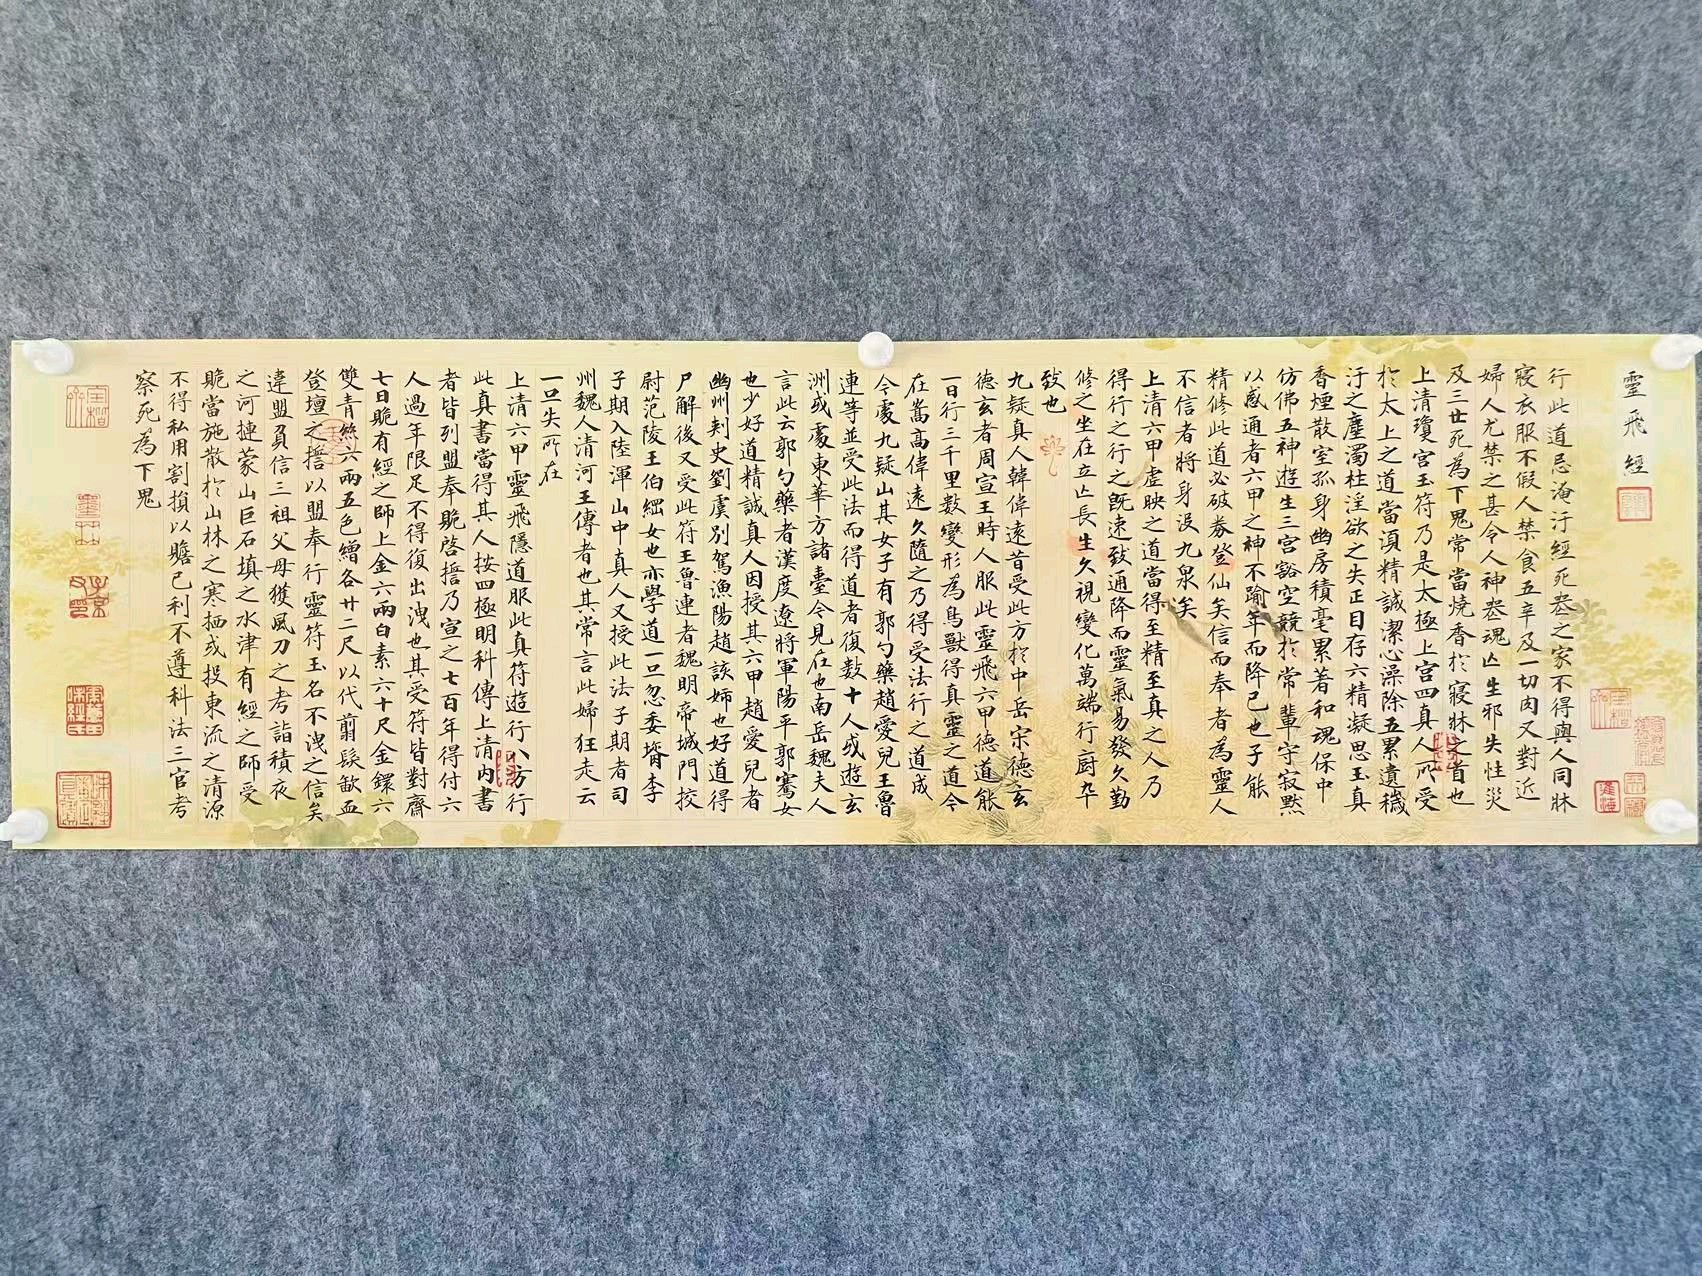 靈飛經
行此道忌淹汙經死喪之家不得與人同牀
寢衣服不假人禁食五辛及一切肉又對近
婦人尤禁之甚令人神喪魂亡生邪失性災
及三世死為下鬼常當燒香於寢牀之首也
上清瓊宮玉符乃是太極上宮四真人所受
於太上之道當須精誠潔心澡除五累遺穢
汙之塵濁杜淫欲之失正目存六精凝思玉真
香煙散室孤身幽房積毫累著和魂保中
仿佛五神遊生三宮豁空競於常輩守寂默
以感通者六甲之神不踰年而降已也子能
精修此道必破券登仙矣信而奉者為靈人
不信者將身沒九泉矣
上清六甲虛映之道當得至精至真之人乃
得行之行之既速致通降而靈氣易發久勤
修之坐在立亡長生久視變化萬端行廚卒
致也
九疑真人韓偉遠昔受此方於中岳宋德玄
德玄者周宣王時人服此靈飛六甲德道能
一日行三千里數變形為鳥獸得真靈之道今
在嵩高偉遠久隨之乃得受法行之道成
今處九疑山其女子有郭勺藥趙愛兒王魯
連等並受此法而得道者復數十人或遊玄
洲或處東華方諸臺今見在也南岳魏夫人
言此云郭勺藥者漢度遼將軍陽平郭騫女
也少好道精誠真人因授其六甲趙愛兒者
幽州刺史劉虞別駕漁陽趙該姊也好道得
尸解後又受此符王魯連者魏明帝城門挍
尉范陵王伯綱女也亦學道一旦忽委壻李
子期入陸渾山中真人又授此法子期者司
州魏人清河王傳者也其常言此婦狂走云
一旦失所在
上清六甲靈飛隱道服此真符遊行八方行
此真書當得其人按四極明科傳上清內書
者皆列盟奉貺啓誓乃宣之七百年得付六
人過年限足不得復出洩也其受符皆對齋
七日貺有經之師上金六兩白素六十尺金鐶六
雙青絲六兩五色繒各廿二尺以代翦髮歃血
登壇之誓以盟奉行靈符玉名不洩之信矣
違盟負信三祖父母獲風刀之考詣積夜
之河摙蒙山巨石填之水津有經之師受
貺當施散於山林之寒栖或投東流之清源
不得私用割損以贍己利不遵科法三官考
察死為下鬼